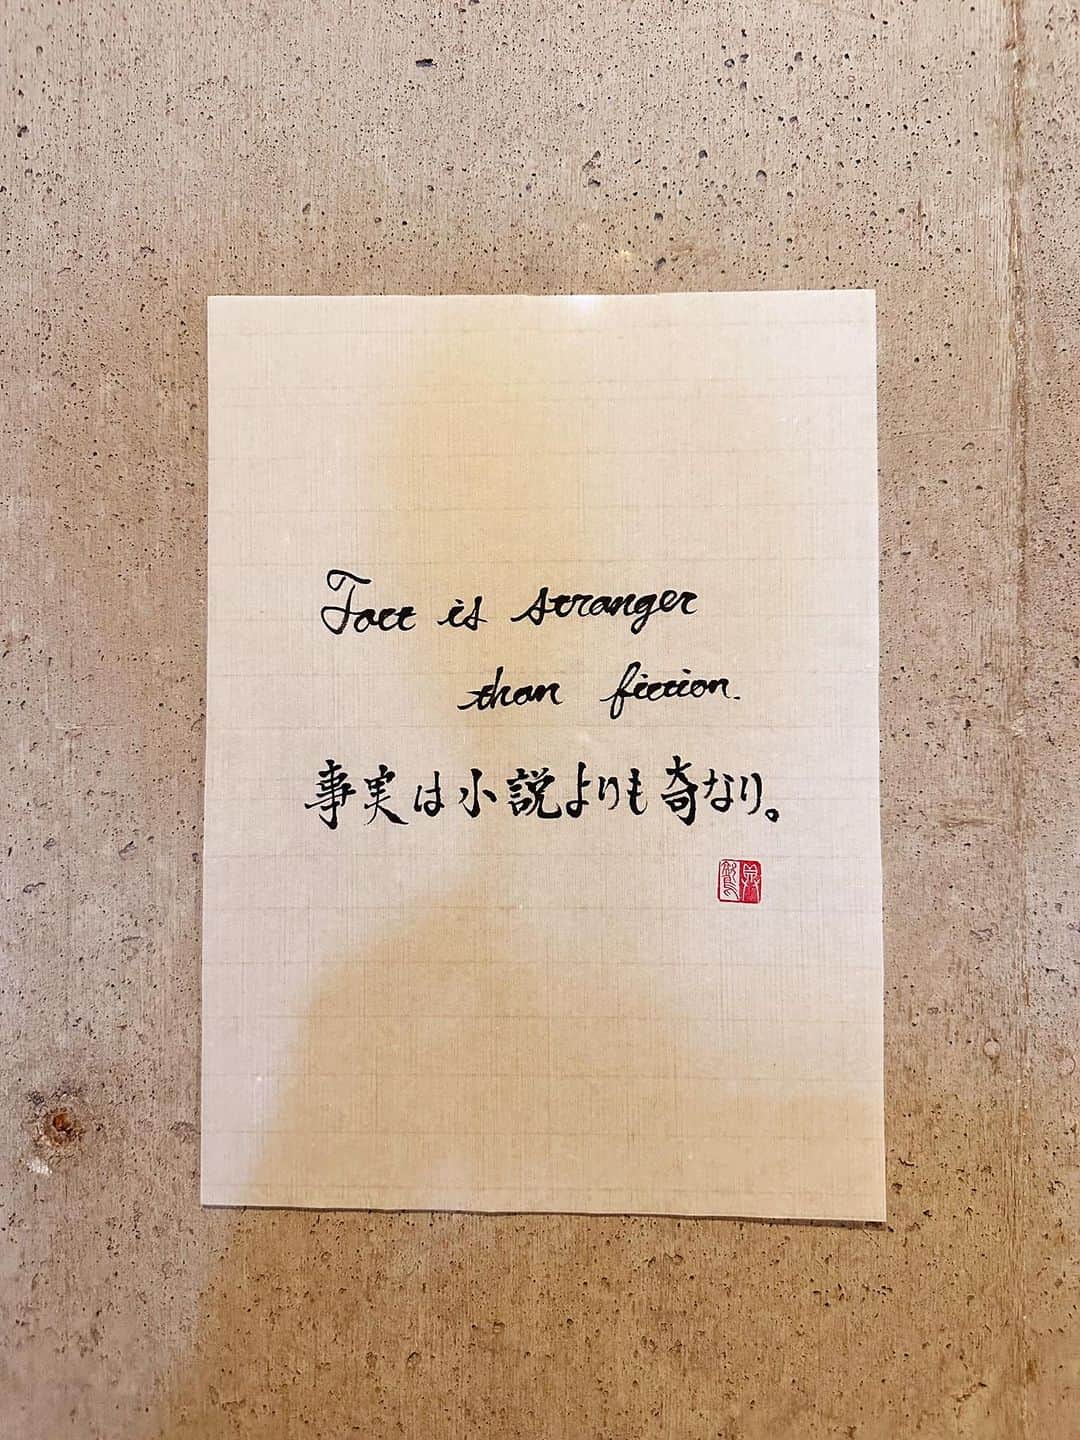 Fact is stranger
than fiction.
事実は小説よりも奇なり。